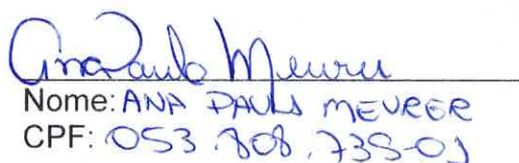 Ana Paula Meurer
Nome: ANA PAULA MEURER
CPF: 053.808.739-01